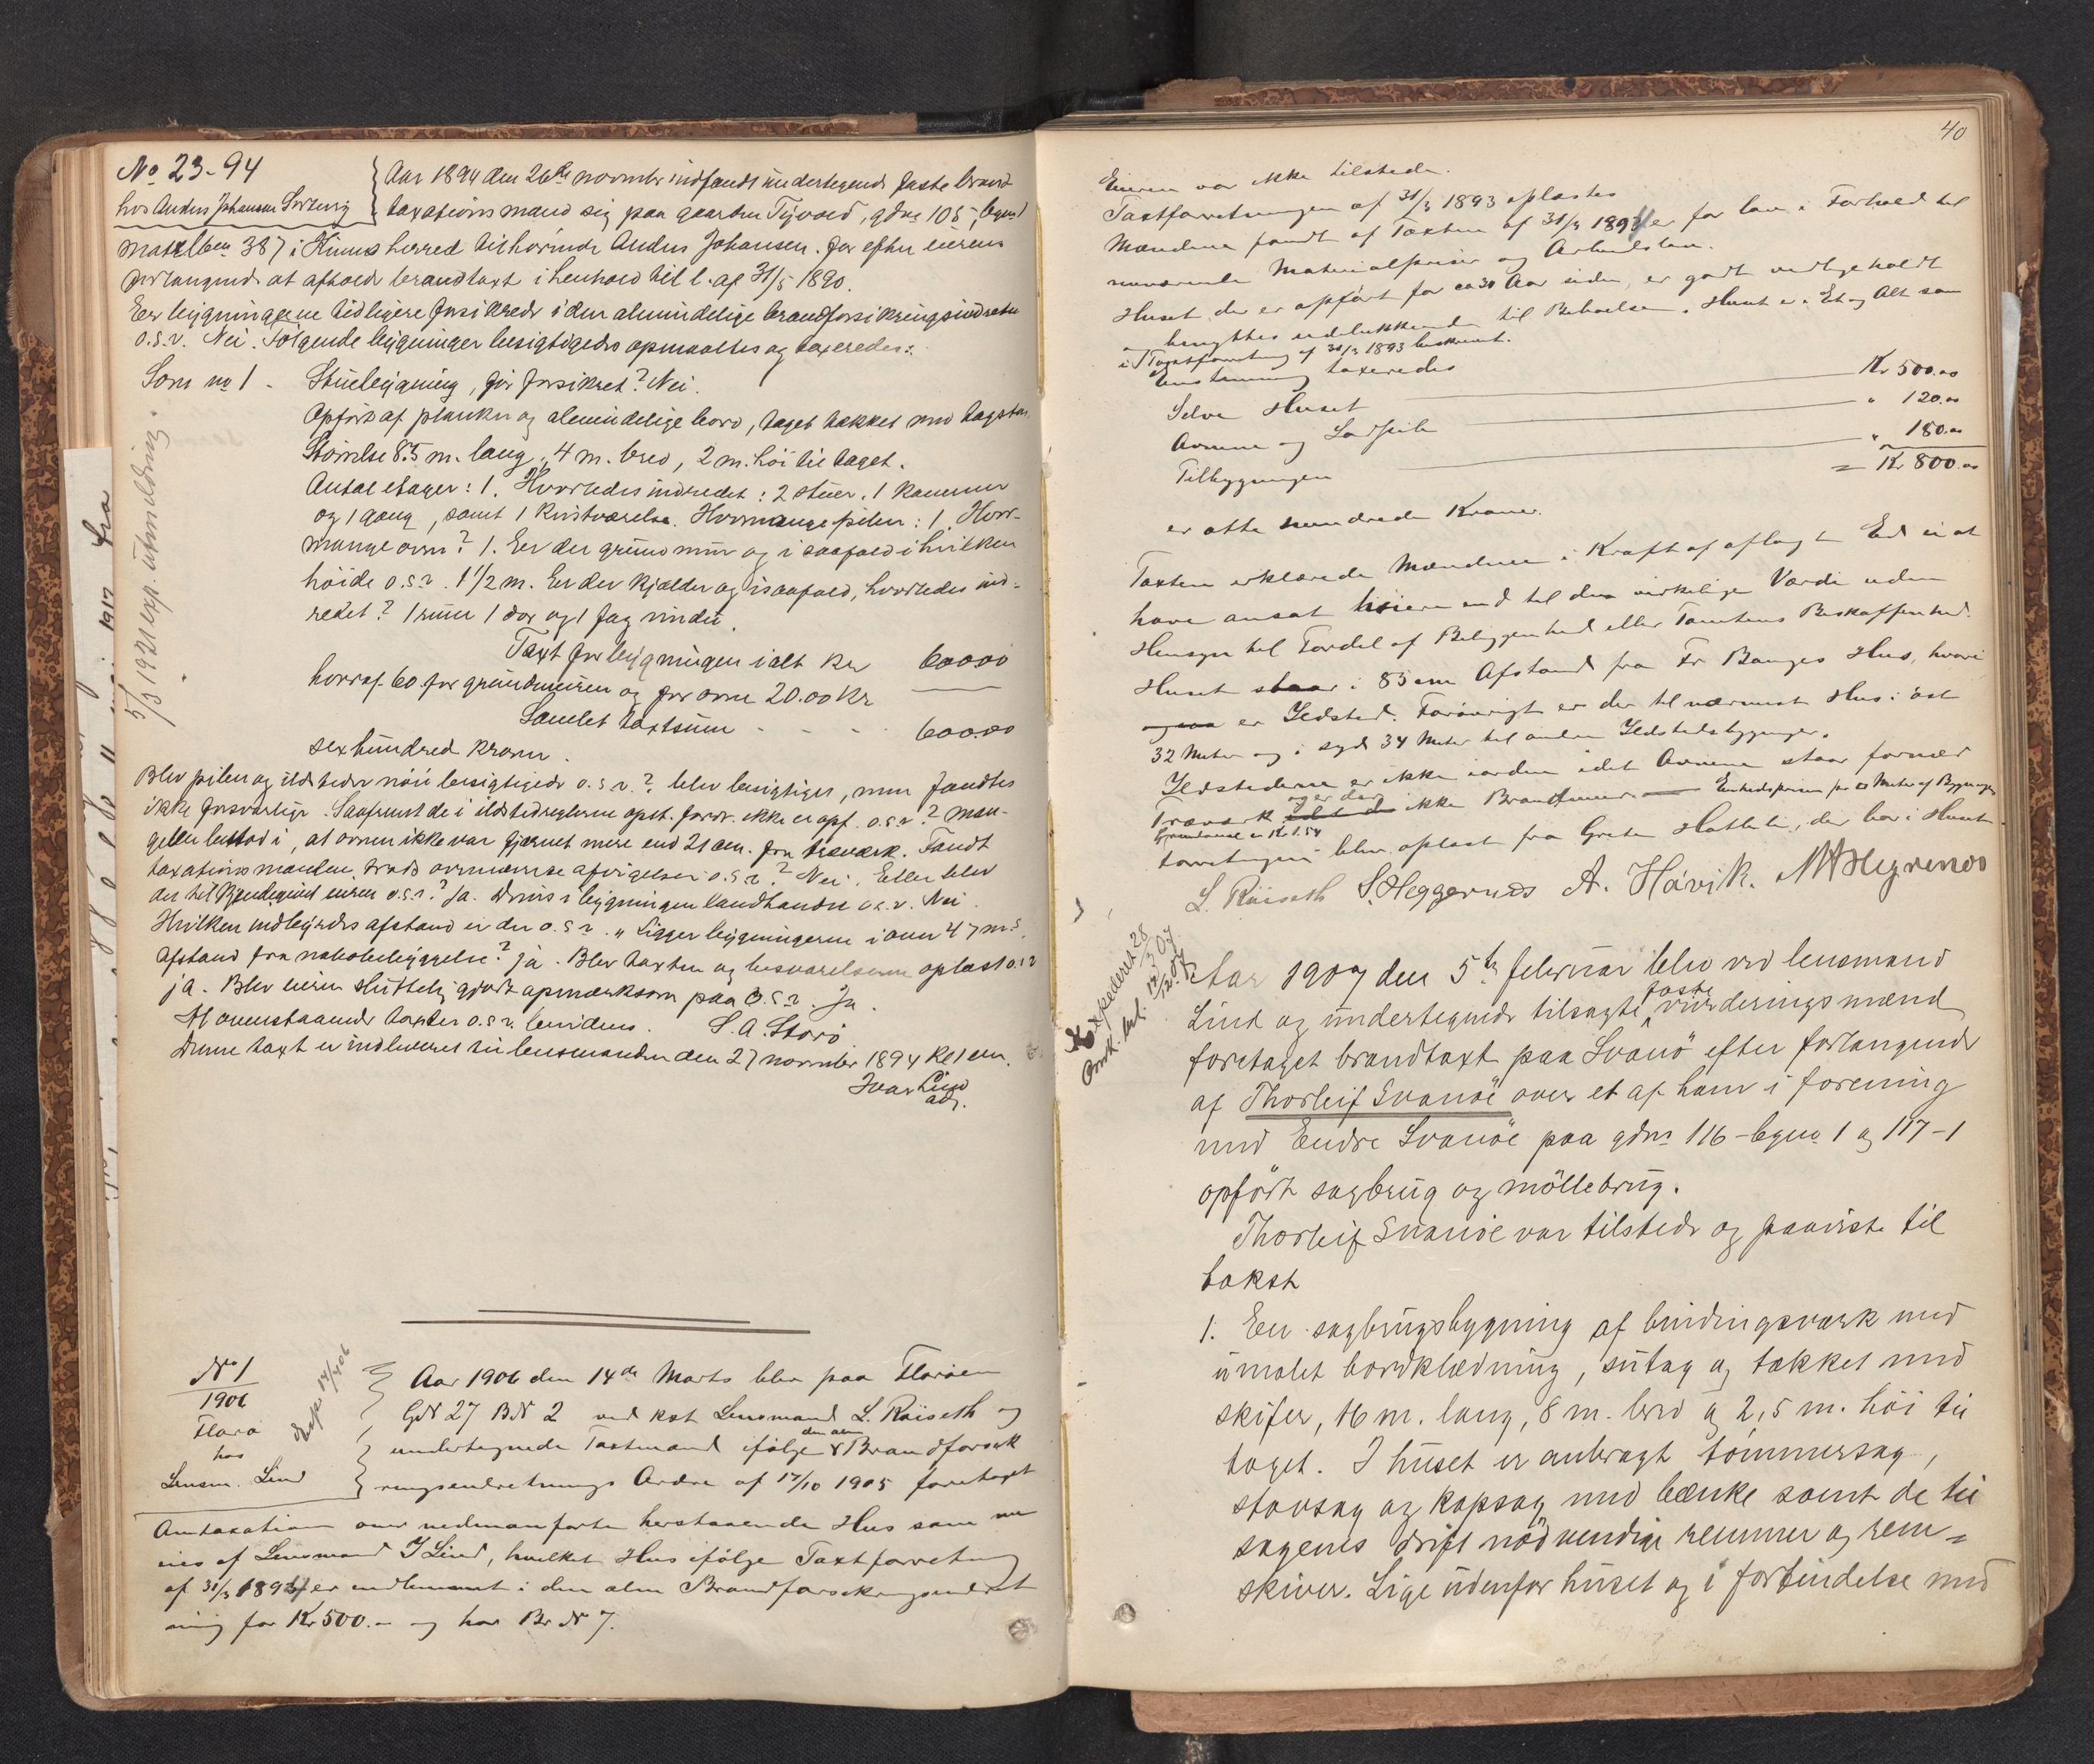 No 23-94
hos Anders Johansen
Aar 1894 den 26de november indfandt undertegnede faste brand
taxationsmand sig paa gaarden gdno 105, bgno 1
matrlben 387 i Kinns herred tilhørende Anders Johansen. for efter eierens
forlangende at afholde brandtaxt i henhold til l. af 31/5 1890.
Er bygningerne tidligere forsikrede i den almindelige brandforsikringsindretn
o.s.v. Nei. Følgende bygninger besigtigedes opmaaltes og taxeredes:
Som no 1 - Stuebygning, før forsikret? Nei.
Opført af planker og almindelige bord, taget tækket med
Størrelse 8.5 m. lang, 4 m. bred, 2 m. höi til taget.
Antal etager: 1. Hvorledes indredet: 2 stuer, 1 kammer
og 1 gang, samt 1 kvistværelse. Hvormange piber: 1. Hvor-
mange ovne? 1. Er der grundmur og i saafald i hvilken
höide o.s.v. 1 1/2 m. Er der kjælder og isaafald, hvorledes ind-
redet? 1 rum 1 dør og 1 fag vindu.
Taxt for bygningen ialt Kr 600.00
hvoraf 60 for grundmuren og for ovne 20.00 Kr
Samlet taxtsum - - - 600.00
sexhundred kroner.
5/3 1921 exp. utmelding.
Blev piber og ildsteder nöie besigtigede o.s.v.? blev besigtiget, men fandtes
ikke forsvarlige. Saafremt de i ildstedreglerne opst. fordr. ikke er opf. o.s.v.? Man-
gelen bestod i, at ovnen ikke var fjærnet mere end 21 cm. fra træværk. Fandt
taxationsmanden, trods ovennævnte afvigelser o.s.v.? Nei. Eller blev
det tilkjendegivet eieren o.s.v.? Ja. Drives i bygningen landhandel o.s.v. Nei.
Hvilken indbyrdes afstand er der o.s.v. „ Ligger bygningerne i over 47 m.s
afstand fra nabobebyggelse? ja. Blev taxten og besvarelserne oplæst o.s.v
ja. Blev eieren sluttelig gjort opmærksom paa o.s.v. Ja.
At ovenstaaende taxter o.s.v. bevidnes. S. A. Storö
Denne taxt er indleveret til lensmanden den 27 november 1894 Kl 1 em.
Ivar Lind
adj.
No 1
1906
Flora
hos
Lensm. Lind
Exp. 17/4 06
Aar 1906 den 14de Marts blev paa Florøen
GN 27 BN 2 ved kst Lensmand L. Röiseth og
undertegnede Taxtmænd ifølge den alm Brandforsik
ringsindretnings Ordre af 17/10 1905 foretaget
Omtaxation over nedenanførte herstaaende Hus som
eies af Lensmand I Lind, hvilket Hus ifølge Taxtforretning
af 31/3 1893 er indlemmet i den alm Brandforsikringsindret
ning for Kr 500.- og har Br N 7.
40
Eieren var ikke tilstede.
Taxtforretningen af 31/3 1893 oplæstes
Mændene fandt af Taxten af 31/3 1893 er for lav i Forhold til
nuværende Materialpriser og Arbeidsløn.
Huset der er opført for ca 30 Aar siden, er godt vedligeholdt
og benyttes udelukkende til Beboelse. Huset er i Et og Alt som
i Taxtforretning af 31/3 1893 beskrevet.
Enstemmig taxeredes
Selve Huset Kr 500.00
Ovnene og „ 120.00
Tilbygningen „ 180.00
= Kr. 800.00
er otte hundrede Kroner.
Taxten erklærede Mændene i Kraft af aflagt Ed ei at
have ansat høiere end til den virkelige Værdi uden
Hensyn til Fordel af Beliggenhed eller Tomtens Beskaffenhed.
Huset staar i 85 cm Afstand fra Fr Banges Hus, hvori
er Ildsted. Forøvrigt er der til nærmest Hus i øst
32 Meter og i syd 34 Meter til anden Ildstedsbygninger.
Ildstederne er ikke iorden idet Ovnene staar for nær
Træværk og er der ikke Brandmur. Enhedsprisen pr □ Meter af Bygningens
Grundareal er Kr 1.54
forretningen blev oplæst fra Grete Hatlelid, der bor i Huset.
L. Röiseth S. Heggernes A. Hävik. M A Hegrenes
Expederet 28/3 07
Aar 1907 den 5te februar blev ved lensmand
Lind og undertegnede tilsagte faste vurderingsmænd
foretaget brandtaxt paa Svanö efter forlangende
af Thorleif Svanöe over et af ham i forening
med Endre Svanöe paa gdno 116 - bgno 1 og 117-1
opført sagbrug og möllebrug.
Thorleif Svanöe var tilstede og paaviste til
takst
1. En sagbrugsbygning af bindingsværk med
umalet bordklædning, sutag og tækket med
skifer, 16 m. lang, 8 m. bred og 2,5 m. höi til
taget. I huset er anbragt tömmersag,
stavsag og kapsag med bænke samt de til
sagenes drift nödvendige remmer og rem=
skiver. Lige udenfor huset og i forbindelse med